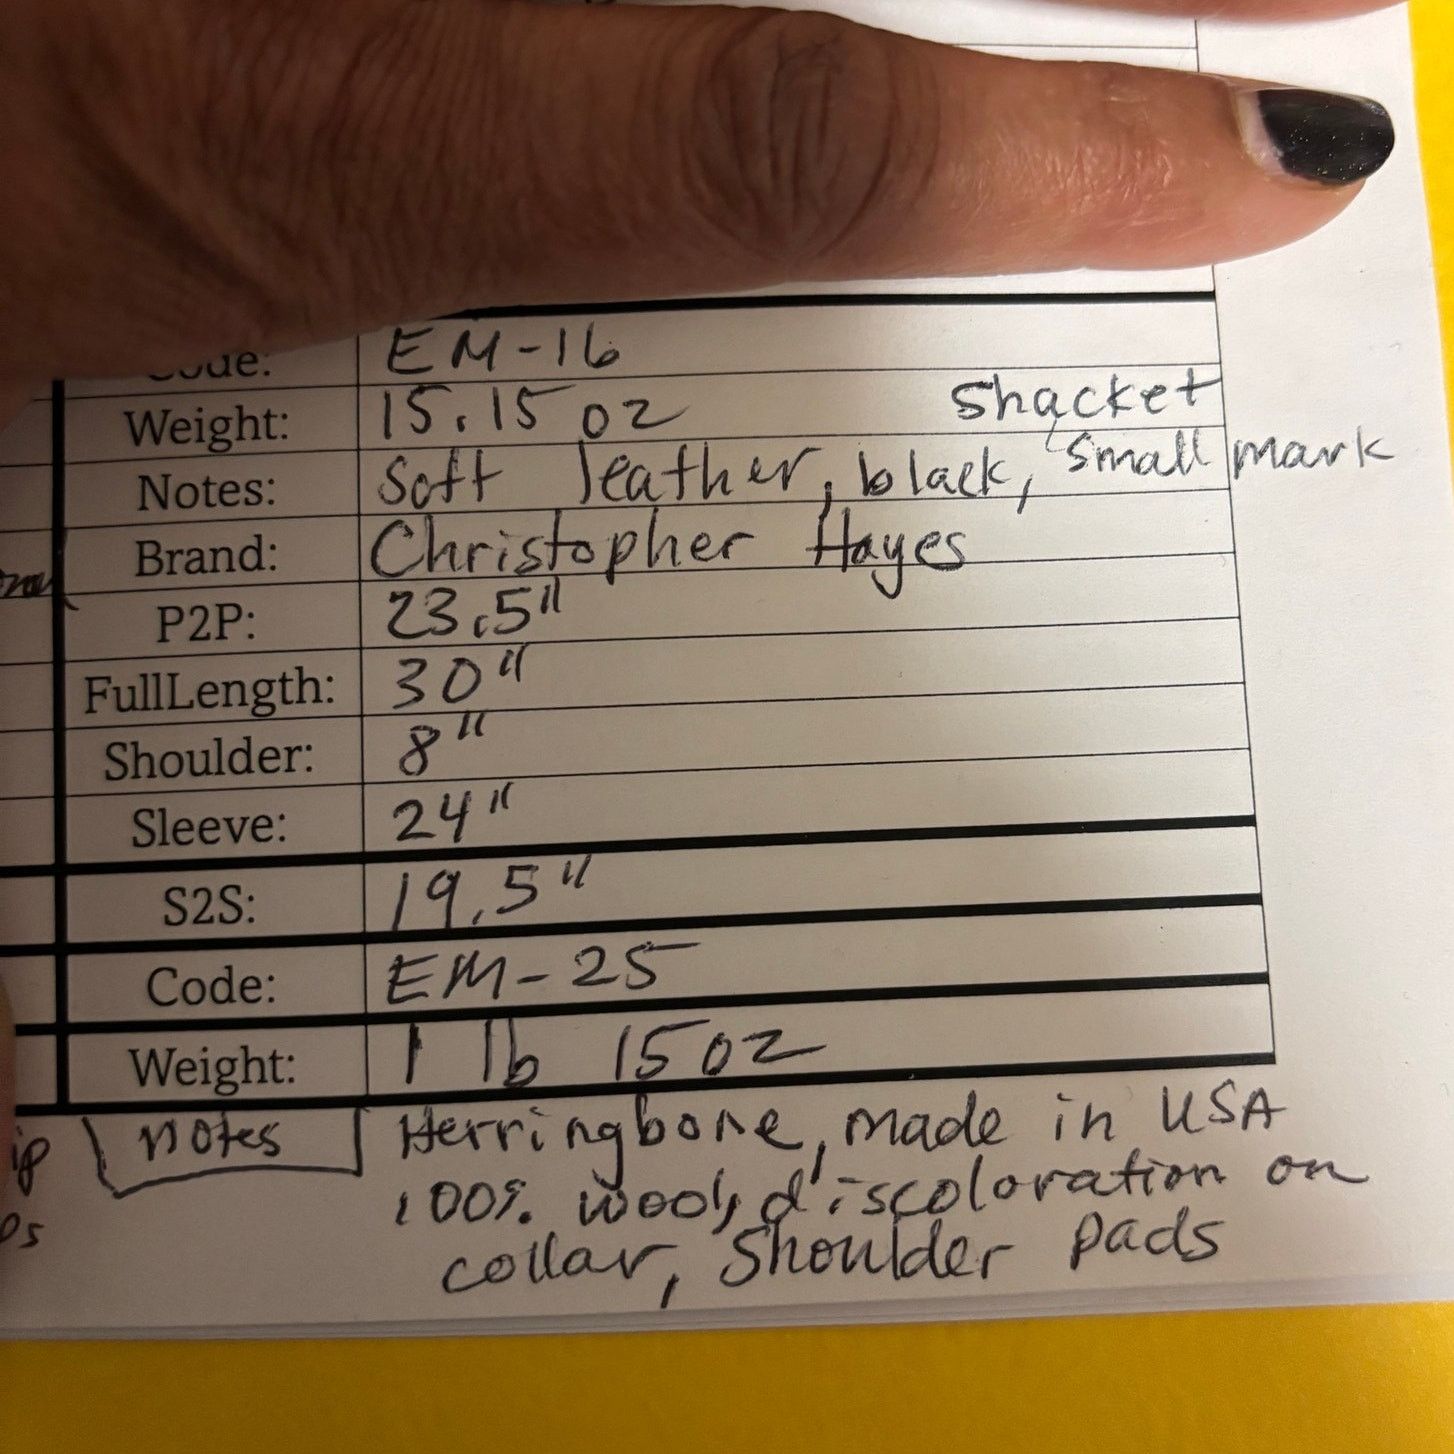 Code: EM-16
Weight: 15.15 oz shacket
Notes: Soft leather, black, small mark
Brand: Christopher Hayes
P2P: 23.5"
FullLength: 30"
Shoulder: 8"
Sleeve: 24"
S2S: 19.5"
Code: EM-25
Weight: 1 lb 15 oz
notes Herringbone, made in USA
100% wool, discoloration on
collar, Shoulder pads